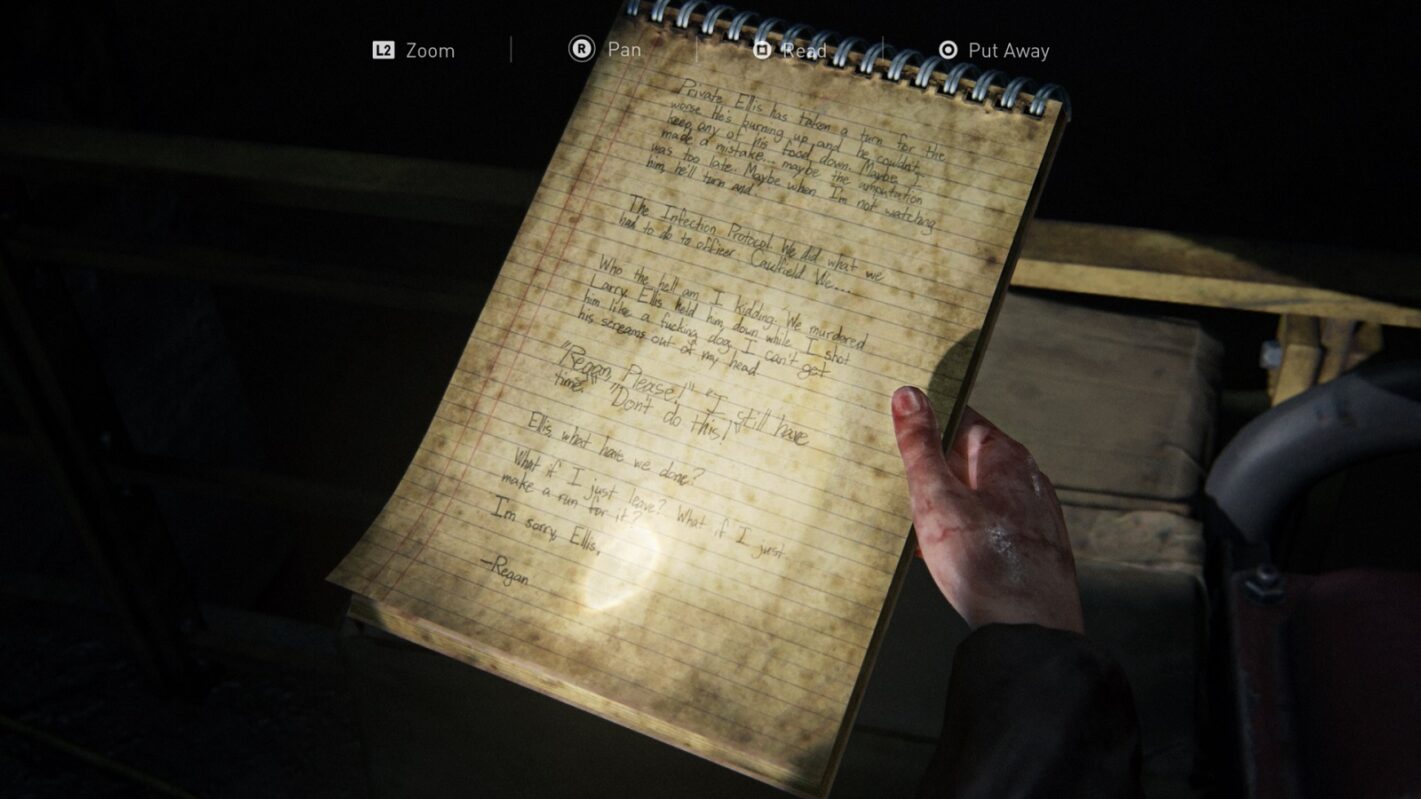 L2 Zoom
R Pan
Read
Put Away
Private Ellis has taken a turn for the
worse. He's burning up and he couldn't
keep any of his food down. Maybe I
made a mistake... maybe the amputation
was too late. Maybe when I'm not watching
him, he'll turn and.
The Infection Protocol. We did what we
had to do to officer Caulfield. We....
Who the hell am I kidding. We murdered
Larry. Ellis held him down while I shot
him like a fucking dog. I can't get
his screams out of my head.
"Regan, Please!" "I still have
time." "Don't do this!"
Ellis, what have we done?
What if I just leave? What if I just
make a run for it?
I'm sorry, Ellis,
-Regan